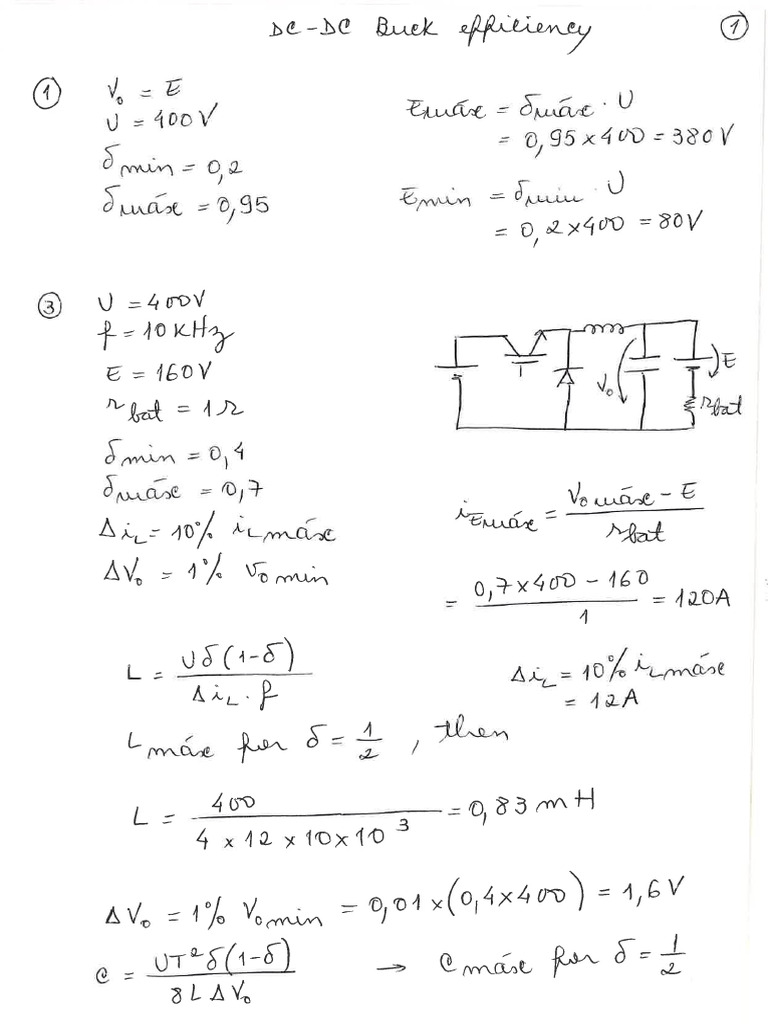 DC-DC Buck efficiency
1
1
V₀ = E
U = 400V
δmin = 0,2
δmáx = 0,95
Emáx = δmáx · U
= 0,95 × 400 = 380V
Emin = δmin · U
= 0,2 × 400 = 80V
3
U = 400V
f = 10 KHz
E = 160V
rbat = 1Ω
δmin = 0,4
δmáx = 0,7
ΔiL = 10% iLmáx
ΔV₀ = 1% V₀min
V₀
E
rbat
iEmáx = (V₀máx - E) / rbat
= (0,7 × 400 - 160) / 1 = 120A
L = Uδ(1-δ) / (ΔiL · f)
ΔiL = 10% iLmáx
= 12A
Lmáx for δ = 1/2, then
L = 400 / (4 × 12 × 10 × 10³) = 0,83 mH
ΔV₀ = 1% V₀min = 0,01 × (0,4 × 400) = 1,6V
C = UT²δ(1-δ) / (8LΔV₀) → Cmáx for δ = 1/2